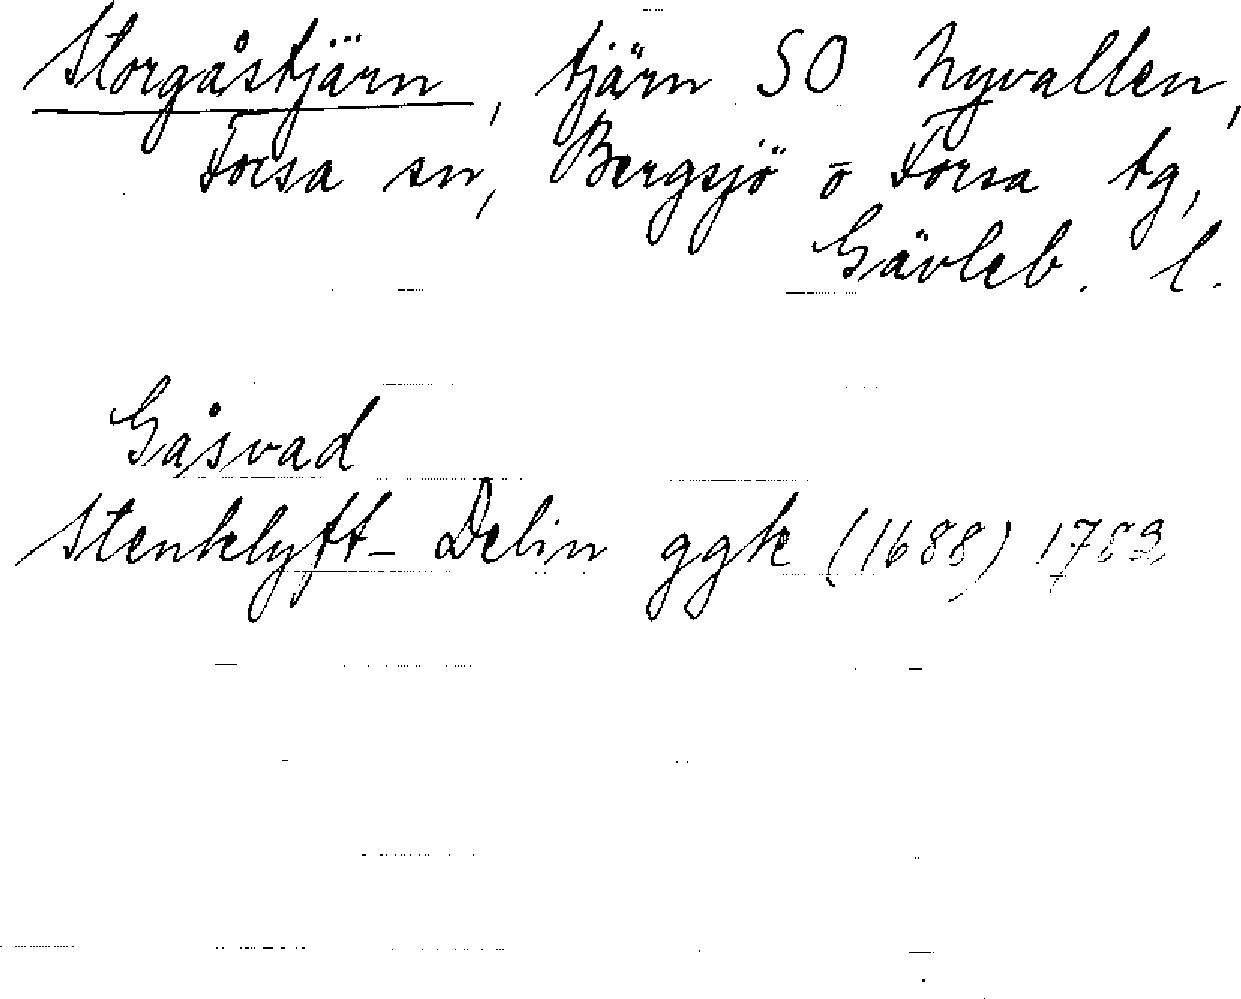 Storgåstjärn, tjärn SO Nyvallen,
Forsa sn, Bergsjö o Forsa tg,
Gävleb. l.
Gåsvad
Stenklyft- Delin ggk (1688) 1783